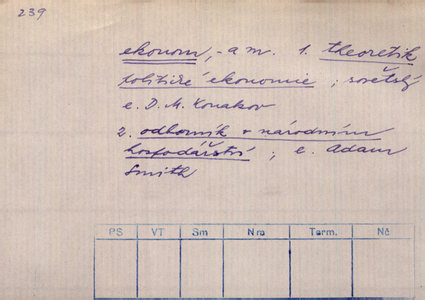 239
ekonom, -a m. 1. theoretik
politické ekonomie; sovětský
e. D. M. Konakov
2. odborník v národním
hospodářství; e. Adam
Smith
PS VT Sm Nro Term. Nč